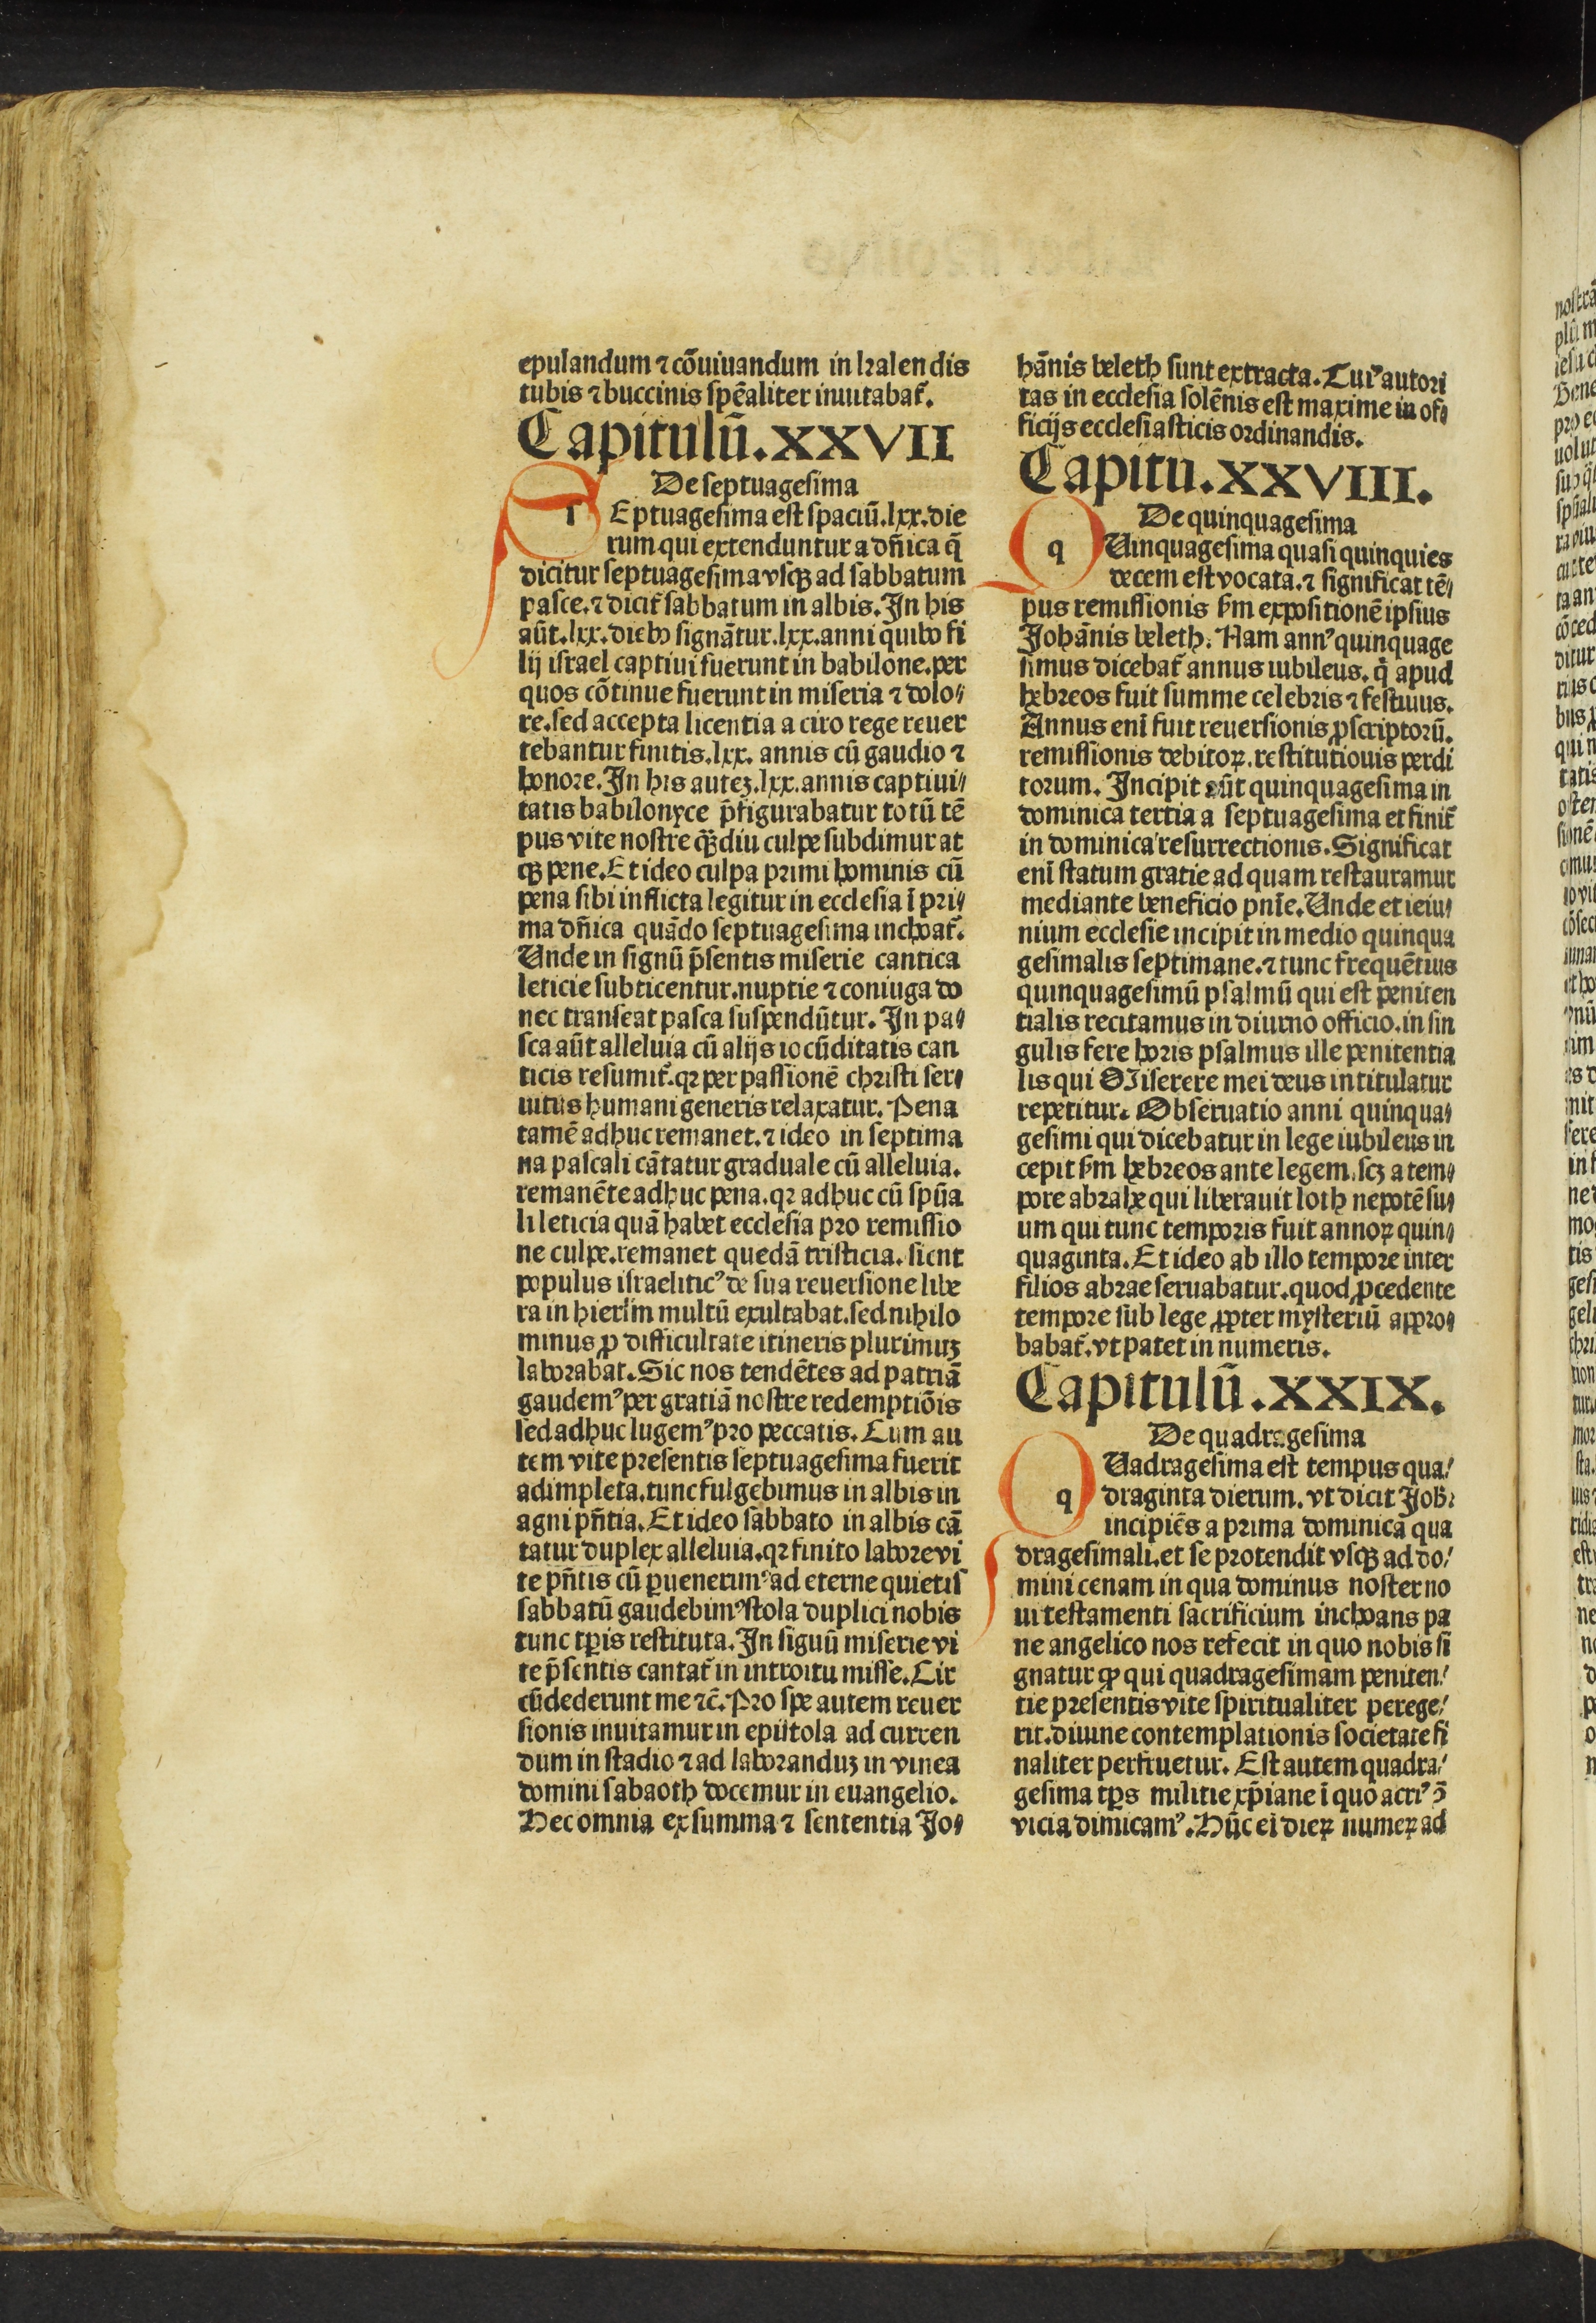 epulandum ⁊ cõuiuandum in kalendis
tubis ⁊ buccinis spẽaliter inuitabat̃.
Capitulũ.XXVII
De septuagesima
SEptuagesima est spaciũ.lxx.die
rum qui extenduntur a dñica q̃
dicitur septuagesima vsqꝫ ad sabbatum
pasce.⁊ dicit̃ sabbatum in albis. In his
aũt.lxx.diebꝰ signãtur.lxx.anni quibꝰ fi
lij israel captiui fuerunt in babilone.per
quos cõtinue fuerunt in miseria ⁊ dolo⸗
re.sed accepta licentia a ciro rege reuer
tebantur finitis.lxx. annis cũ gaudio ⁊
honore. In his autez.lxx.annis captiui⸗
tatis babilonyce p̃figurabatur totũ tẽ
pus vite nostre qꝫdiu culpe subdimur at
qꝫ pene. Et ideo culpa primi hominis cũ
pena sibi inflicta legitur in ecclesia ĩ pri⸗
ma dñica quãdo septuagesima inchoat̃.
Unde in signũ p̃sentis miserie cantica
leticie subticentur.nuptie ⁊ coniuga do
nec transeat pasca suspendũtur. In pa⸗
sca aũt alleluia cũ alijs iocũditatis can
ticis resumit̃.qꝛ per passionẽ christi ser⸗
uitus humani generis relaxatur. Pena
tamẽ adhuc remanet.⁊ ideo in septima
na pascali cãtatur graduale cũ alleluia.
remanẽte adhuc pena.qꝛ adhuc cũ spũa
li leticia quã habet ecclesia pro remissio
ne culpe.remanet quedã tristicia. sicut
populus israeliticꝰ de sua reuersione libe
ra in hierl̃m multũ exultabat.sed nihilo
minus ꝓ difficultate itineris plurimuꝫ
laborabat. Sic nos tendẽtes ad patriã
gaudemꝰ per gratiã nostre redemptiõis
sed adhuc lugemꝰ pro peccatis. Cum au
tem vite presentis septuagesima fuerit
adimpleta.tunc fulgebimus in albis in
agni pñtia. Et ideo sabbato in albis cã
tatur duplex alleluia.qꝛ finito labore vi
te pñtis cũ ꝑuenerimꝰ ad eterne quietis
sabbatũ gaudebimꝰ stola duplici nobis
tunc tꝑis restituta. In siguũ miserie vi
te p̃sentis cantat̃ in introitu misse. Cir
cũdederunt me ⁊c̃. Pro spe autem reuer
sionis inuitamur in epistola ad curren
dum in stadio ⁊ ad laboranduꝫ in vinea
domini sabaoth docemur in euangelio.
Hec omnia ex summa ⁊ sententia Jo⸗
hãnis beleth sunt extracta. Cuiꝰ autori
tas in ecclesia solẽnis est maxime in of⸗
ficijs ecclesiasticis ordinandis.
Capitu.XXVIII.
De quinquagesima
q Uinquagesima quasi quinquies
decem est vocata.⁊ significat tẽ⸗
pus remissionis ẜm expositionẽ ipsius
Johãnis beleth. Nam annꝰ quinquage
simus dicebat̃ annus iubileus. q̃ apud
hebreos fuit summe celebris ⁊ festiuus.
Annus enĩ fuit reuersionis ꝓscriptorũ.
remissionis debitoꝝ.restitutiouis perdi
torum. Incipit aũt quinquagesima in
dominica tertia a septuagesima et finit̃
in dominica resurrectionis. Significat
enĩ statum gratie ad quam restauramur
mediante beneficio pnĩe. Unde et ieiu⸗
nium ecclesie incipit in medio quinqua
gesimalis septimane.⁊ tunc frequẽtius
quinquagesimũ psalmũ qui est peniten
tialis recitamus in diurno officio.in sin
gulis fere horis psalmus ille penitentia
lis qui Miserere mei deus intitulatur
repetitur. Obseruatio anni quinqua⸗
gesimi qui dicebatur in lege iubileus in
cepit ẜm hebreos ante legem.scꝫ a tem⸗
pore abrahe qui liberauit loth nepotẽ su⸗
um qui tunc temporis fuit annoꝝ quin⸗
quaginta. Et ideo ab illo tempore inter
filios abrae seruabatur.quod ꝓcedente
tempore sub lege ꝓpter mysteriũ appro⸗
babat̃.vt patet in numeris.
Capitulũ.XXIX.
De quadragesima
q Uadragesima est tempus qua⸗
draginta dierum. vt dicit Joh̃.
incipiẽs a prima dominica qua
dragesimali.et se protendit vsqꝫ ad do⸗
mini cenam in qua dominus noster no
ui testamenti sacrificium inchoans pa
ne angelico nos refecit in quo nobis si
gnatur ꝙ qui quadragesimam peniten⸗
tie presentis vite spiritualiter perege⸗
rit.diuine contemplationis societate fi
naliter perfruetur. Est autem quadra⸗
gesima tꝑs militie xp̃iane ĩ quo acriꝰ ↄ̃
vicia dimicamꝰ. Hũc eĩ dieꝝ numeꝝ ad